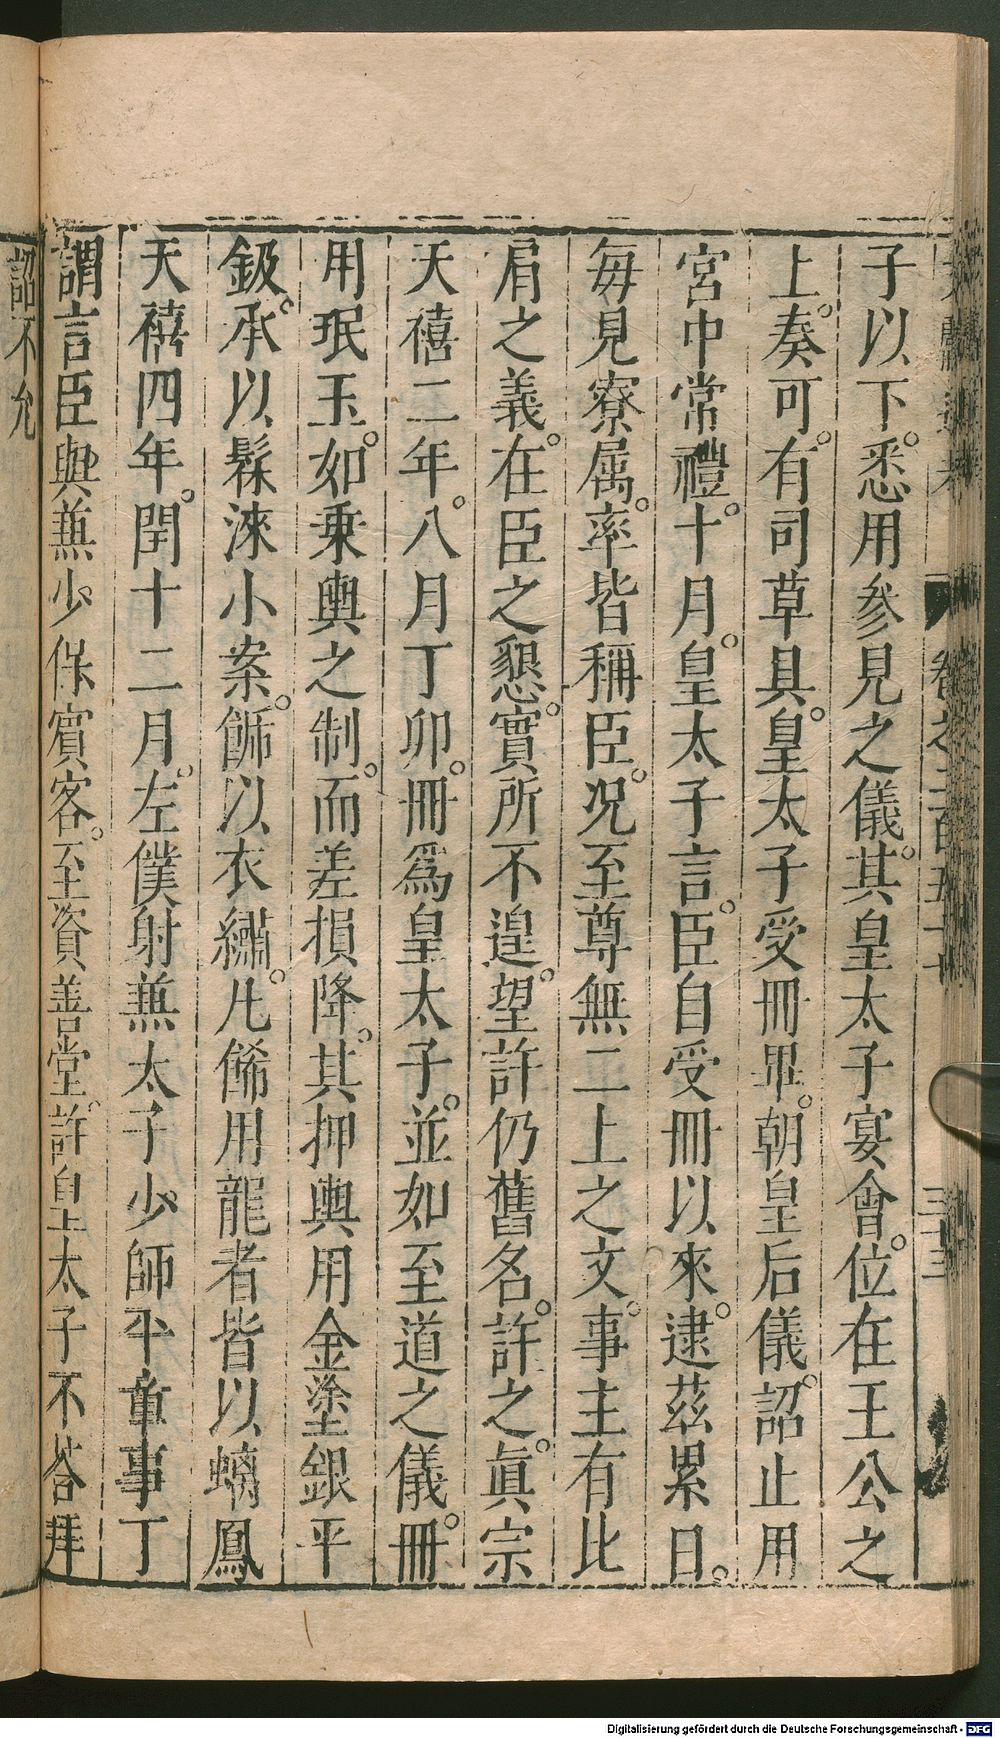 子以下。悉用參見之儀。其皇太子宴會。位在王公之
上。奏可。有司草具。皇太子受冊畢。朝皇后儀。詔止用
宮中常禮。十月。皇太子言。臣自受冊以來。逮茲累日。
每見寮属。率皆稱臣。况至尊無二上之文。事主有比
肩之義。在臣之懇。實所不遑。望許仍舊名。許之。眞宗
天禧二年。八月丁卯。冊爲皇太子。並如至道之儀。冊
用珉玉。如乘輿之制。而差損降。其押輿用金塗銀平
鈒。承以髹淶小案。飾以衣繡。凡餙用龍者皆以螭鳳
天禧四年。閏十二月。左僕射兼太子少師平章事丁
謂言臣與兼少保賓客。至資善堂。許皇太子不荅拜
詔不允
卷之二百五十七
三十三
Digitalisierung gefördert durch die Deutsche Forschungsgemeinschaft - DFG